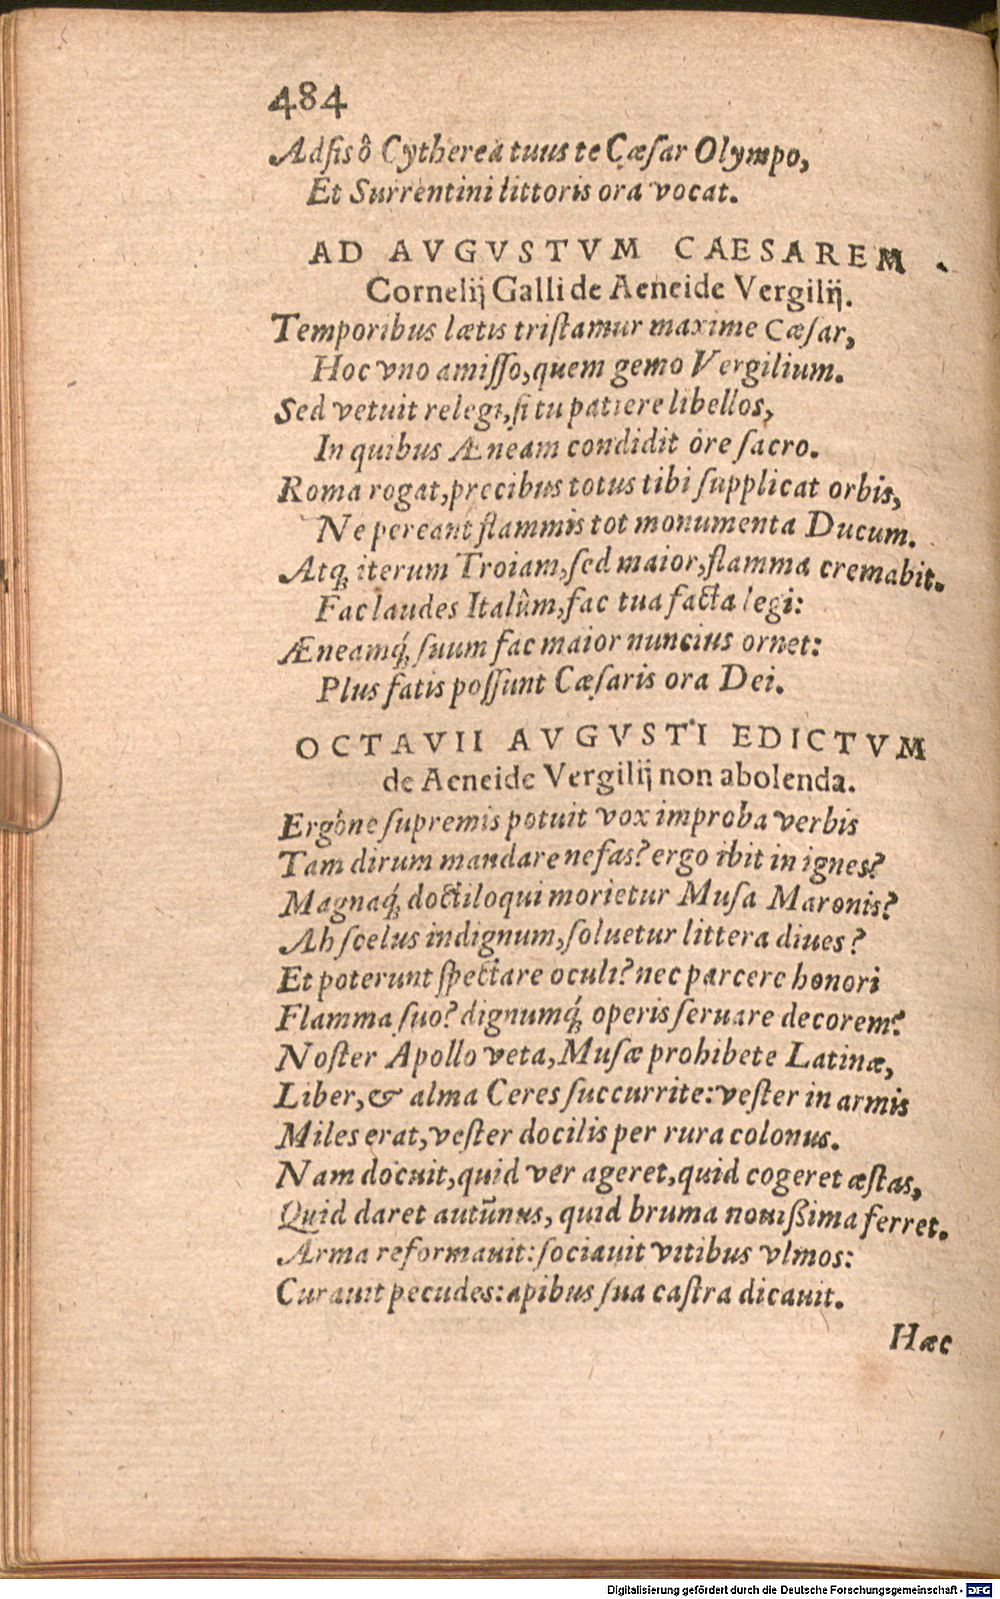 484
Adſis ô Cytherea tuus te Cæſar Olympo,
Et Surrentini littoris ora vocat.
AD AVGVSTVM CAESAREM
Cornelij Galli de Aeneide Vergilij.
Temporibus lætis triſtamur maxime Cæſar,
Hoc vno amiſſo, quem gemo Vergilium.
Sed vetuit relegi, ſi tu patiere libellos,
In quibus Æneam condidit ore ſacro.
Roma rogat, precibus totus tibi ſupplicat orbis,
Ne pereant flammis tot monumenta Ducum.
Atq; iterum Troiam, ſed maior, flamma cremabit.
Fac laudes Italûm, fac tua facta legi:
Æneamq́; ſuum fac maior nuncius ornet:
Plus fatis poſſunt Cæſaris ora Dei.
OCTAVII AVGVSTI EDICTVM
de Aeneide Vergilij non abolenda.
Ergóne ſupremis potuit vox improba verbis
Tam dirum mandare nefas? ergo ibit in ignes?
Magnaq́; doctiloqui morietur Muſa Maronis?
Ah ſcelus indignum, ſoluetur littera diues?
Et poterunt ſpectare oculi? nec parcere honori
Flamma ſuo? dignumq́; operis ſeruare decorem?
Noſter Apollo veta, Muſæ prohibete Latinæ,
Liber, & alma Ceres ſuccurrite: veſter in armis
Miles erat, veſter docilis per rura colonus.
Nam docuit, quid ver ageret, quid cogeret æſtas,
Quid daret autūnus, quid bruma nouiſsima ferret.
Arma reformauit: ſociauit vitibus vlmos:
Curauit pecudes: apibus ſua caſtra dicauit.
Hæc
Digitalisierung gefördert durch die Deutsche Forschungsgemeinschaft - DFG